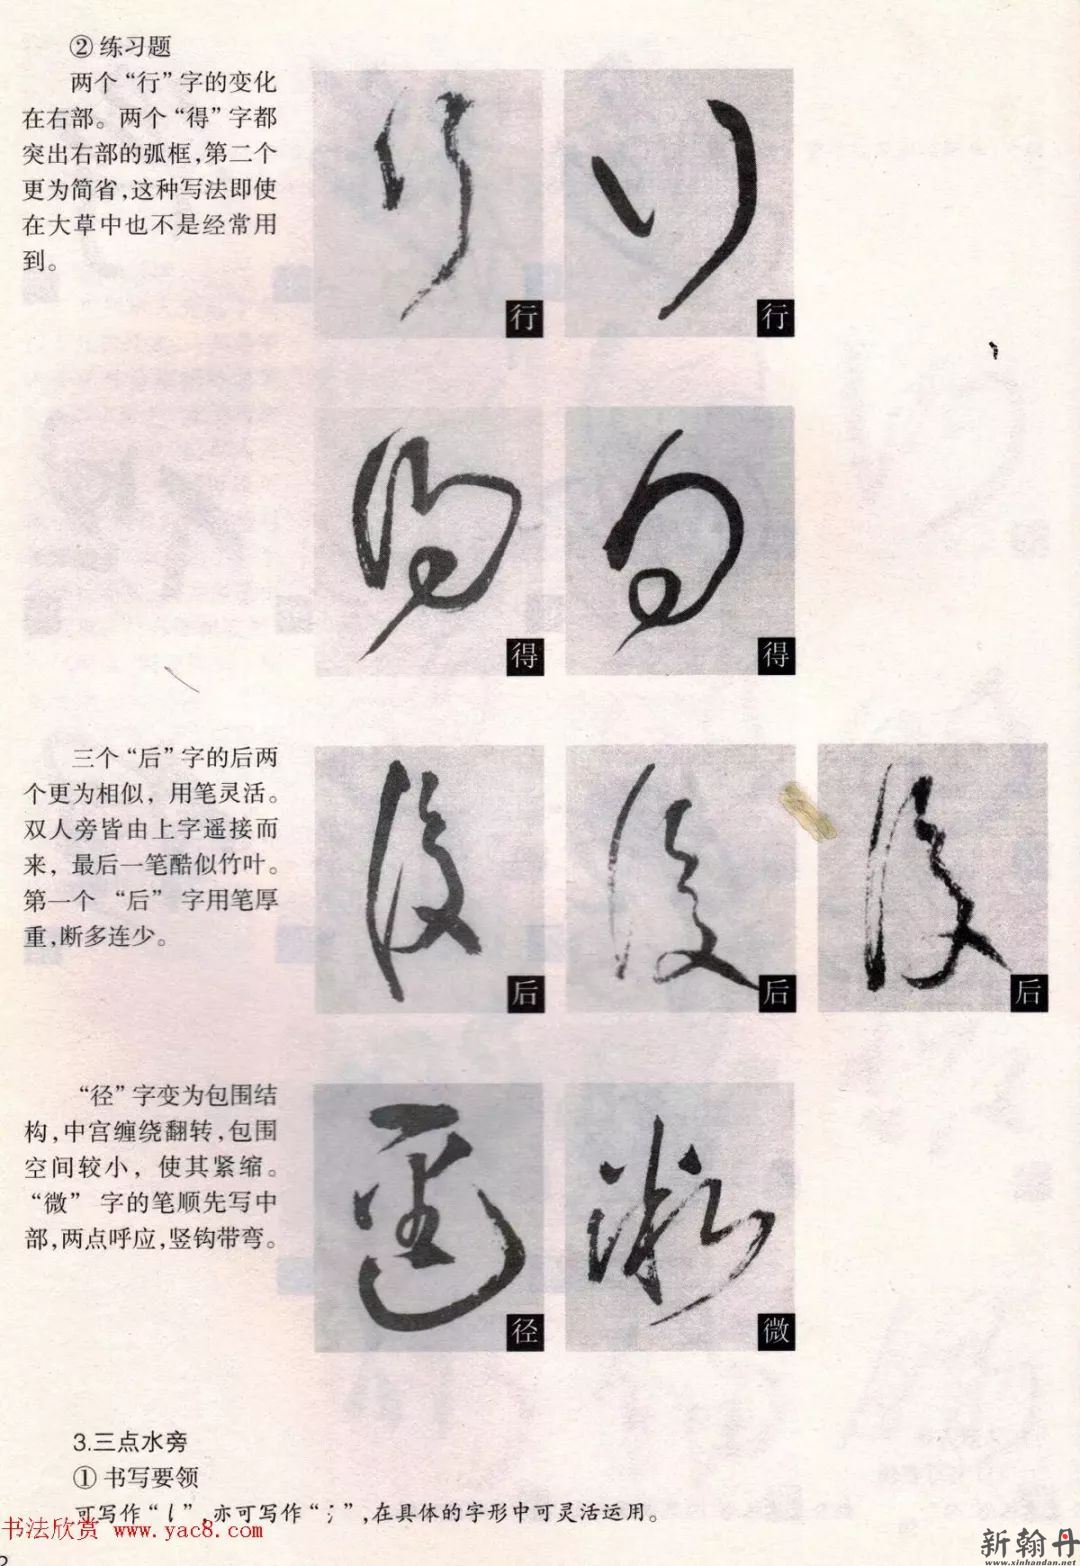 ② 练习题
两个“行”字的变化
在右部。两个“得”字都
突出右部的弧框,第二个
更为简省,这种写法即使
在大草中也不是经常用
到。
行
行
得
得
三个“后”字的后两
个更为相似，用笔灵活。
双人旁皆由上字遥接而
来，最后一笔酷似竹叶。
第一个 “后” 字用笔厚
重,断多连少。
后
后
后
“径”字变为包围结
构,中宫缠绕翻转,包围
空间较小，使其紧缩。
“微” 字的笔顺先写中
部,两点呼应,竖钩带弯。
径
微
3.三点水旁
① 书写要领
可写作“ ”,亦可写作“ ”,在具体的字形中可灵活运用。
书法欣赏 www.yac8.com
新翰丹
www.xinhandan.net